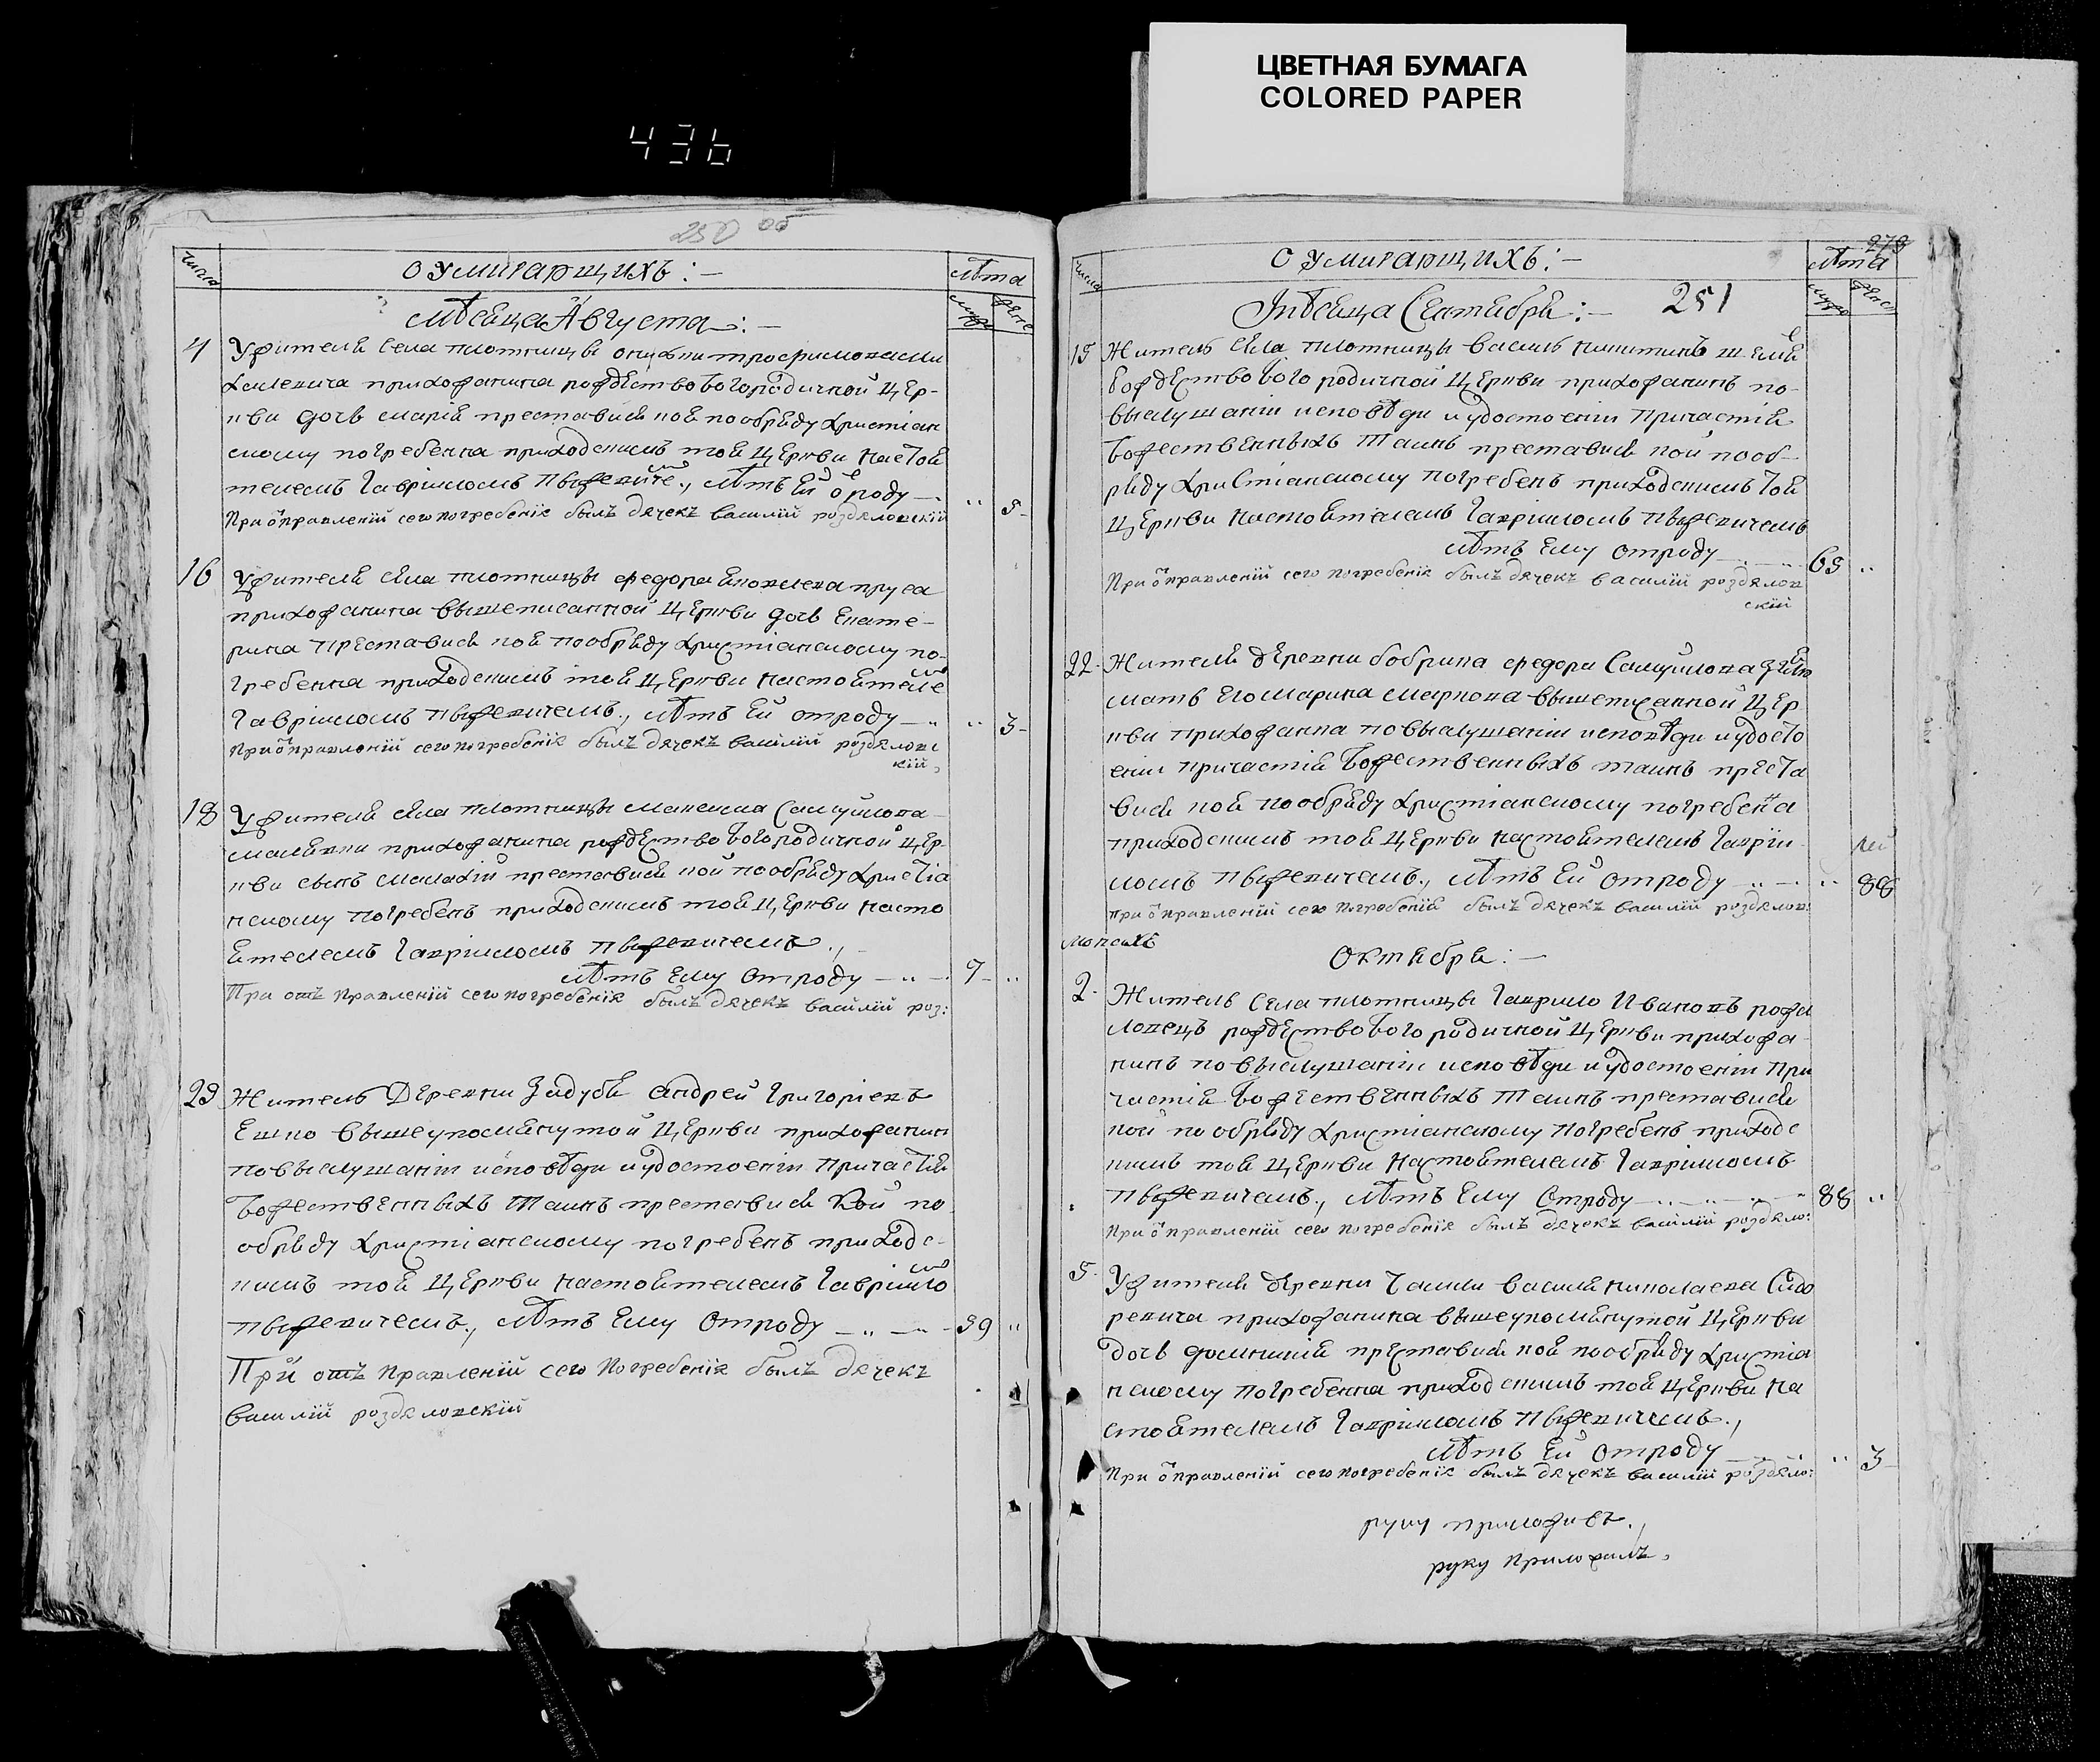 ЦВЕТНАЯ БУМАГА
COLORED PAPER
436
250 об
числа
о умирающихъ :-
лѣта
муж
женс
мѣсяца Августа :-
4 У жителя села плотницы
прихожанина рождество богородичной цер-
кви дочь марія преставися коя по обряду христіан
скому погребенна приходскимъ тоя церкви настоя
телемъ гавріиломъ лѣтъ ей от роду — 5
При отправленій сего погребенія былъ дячекъ василій роздяловскій
16 У жителя села плотницы федора яковлева пруса
прихожанина вышеписанной церкви дочь екате-
рина преставися коя по обряду христіанскому по-
гребенна приходскимъ тоя церкви настоятелемъ
гавріиломъ лѣтъ ей отроду — 3
При отправленій сего погребенія былъ дячекъ василій роздяловс
кій
18 У жителя села плотницы максима самуйлова
прихожанина рождество богородичной цер-
кви сынъ малахій преставися кой по обряду христіа
нскому погребенъ приходскимъ тоя церкви насто
ятелемъ гавріиломъ
лѣтъ ему отроду — 7
При отъ правленій сего погребенія былъ дячекъ василій роз:
29 Житель Деревни Задубя андрей григоріевъ
вышеупомянутой церкви прихожанин
по выслушаніи исповѣди и удостоеніи причастія
божественныхъ таинъ преставися кой по
обряду христіанскому погребенъ приходс-
кимъ тоя церкви настоятелемъ гавріиломъ
лѣтъ ему отроду — 39
При отъ правленій сего погребенія былъ дячекъ
василій роздяловскій
278
числа
о умирающихъ :-
лѣта
муж
женс
мѣсяца Сентября :- 251
15 Житель села плотницы василь никитинъ
рождество богородичной церкви прихожанинъ по-
выслушаніи исповѣди и удостоеніи причастія
божественныхъ таинъ преставися кой по об-
ряду христіанскому погребенъ приходскимъ тоя
церкви настоятелемъ гавріиломъ
лѣтъ ему отроду — 65
При отправленій сего погребенія былъ дячекъ василій роздялов
скій
22 Жителя деревни бобрика федора самуйлова
мать его марина маркова вышеписанной цер
кви прихожанка по выслушаніи исповѣди и удосто
еніи причастія божественныхъ таинъ преста
вися коя по обряду христіанскому погребенна
приходскимъ тоя церкви настоятелемъ гаврiи
ломъ лѣтъ ей отроду — 88
при отправленій сего погребенія былъ дячекъ василій роздялов:
Октября :-
2 Житель села плотницы гаврило ивановъ
рождество богородичной церкви прихожа-
нинъ по выслушаніи исповѣди и удостоеніи при
частія божественныхъ таинъ преставися
кой по обряду христіанскому погребенъ приходс
кимъ тоя церкви настоятелемъ гавріиломъ
лѣтъ ему отроду — 88
При отправленій сего погребенія былъ дячекъ василій роздяло:
5 У жителя деревни василя николаева сидо
ревича прихожанина вышеупомянутой церкви
дочь домникія преставися коя по обряду христіа
нскому погребенна приходскимъ тоя церкви на
стоятелемъ гавріиломъ
лѣтъ ей отроду — 3
При отправленій сего погребенія былъ дячекъ василій роздяло:
руку приложивъ
руку приложилъ